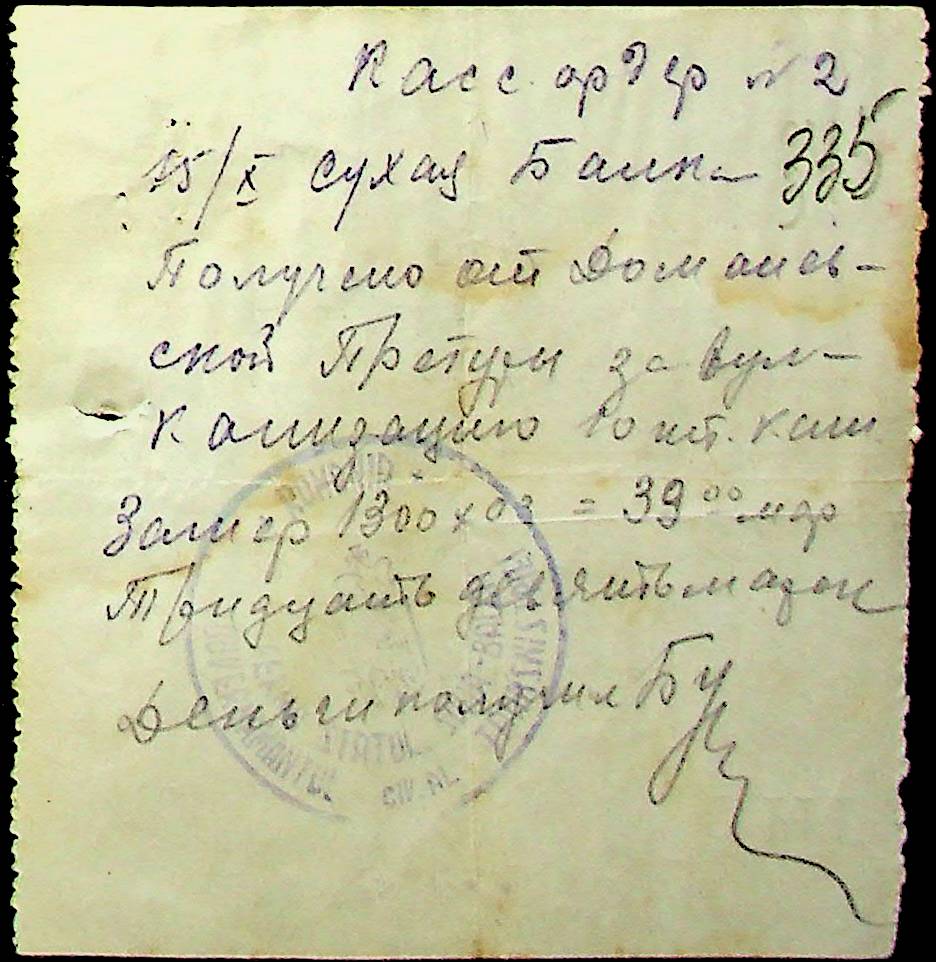 Касс. ордер № 2
15/X Сухая Балка 335
Получено от Доманев-
ской Претуры за вул-
канизацию 10 шт. кам
Замер 1300 х 03 = 39⁰⁰ мар
Тридцать девять марок
Деньги получил Бу
ROMANIA
STATUL
CIVIL